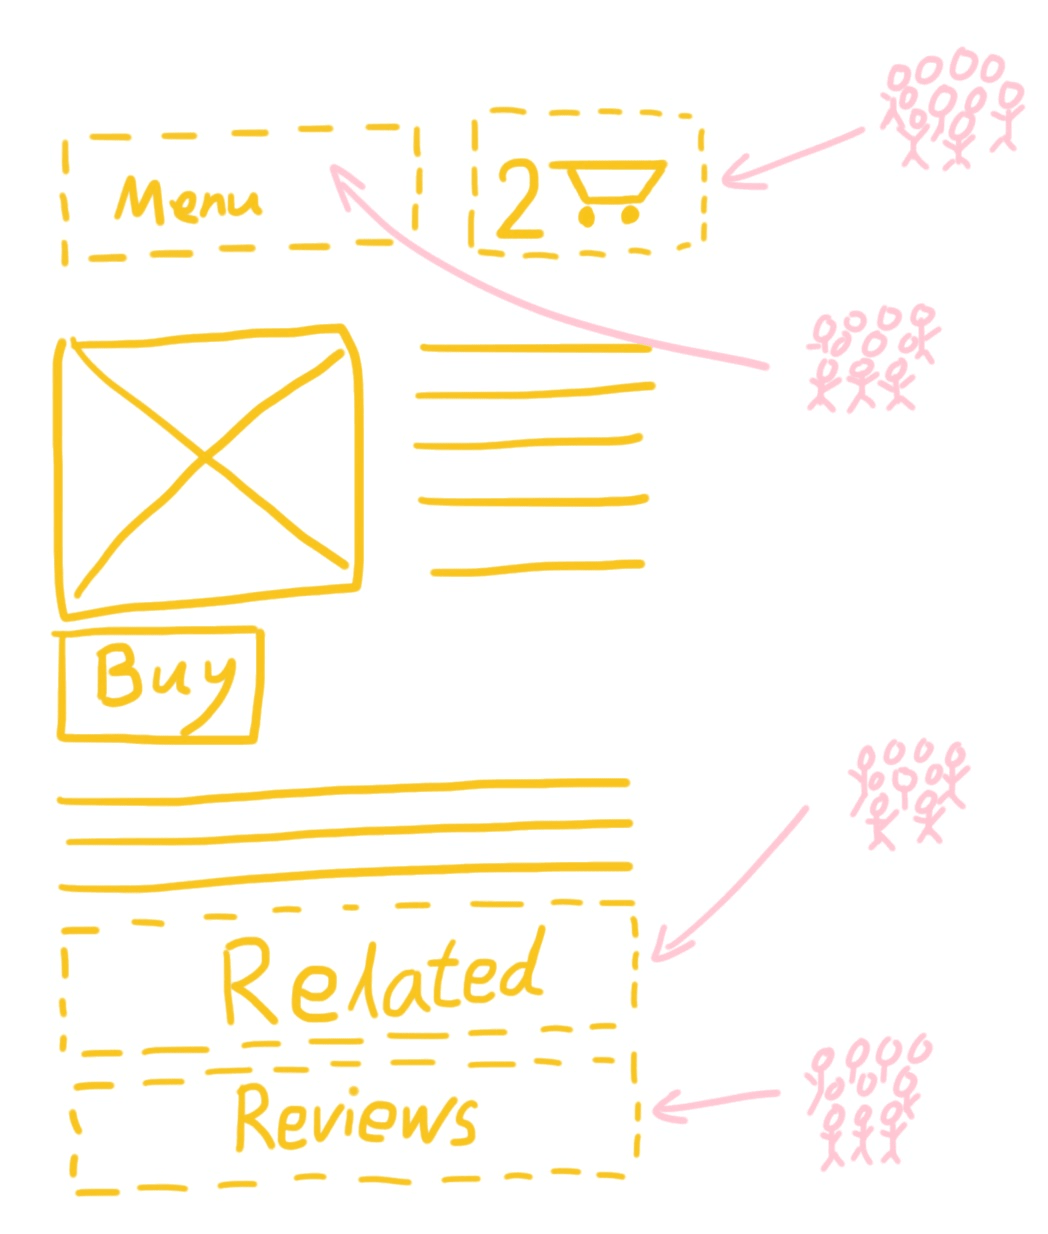 Menu
2
Buy
Related
Reviews